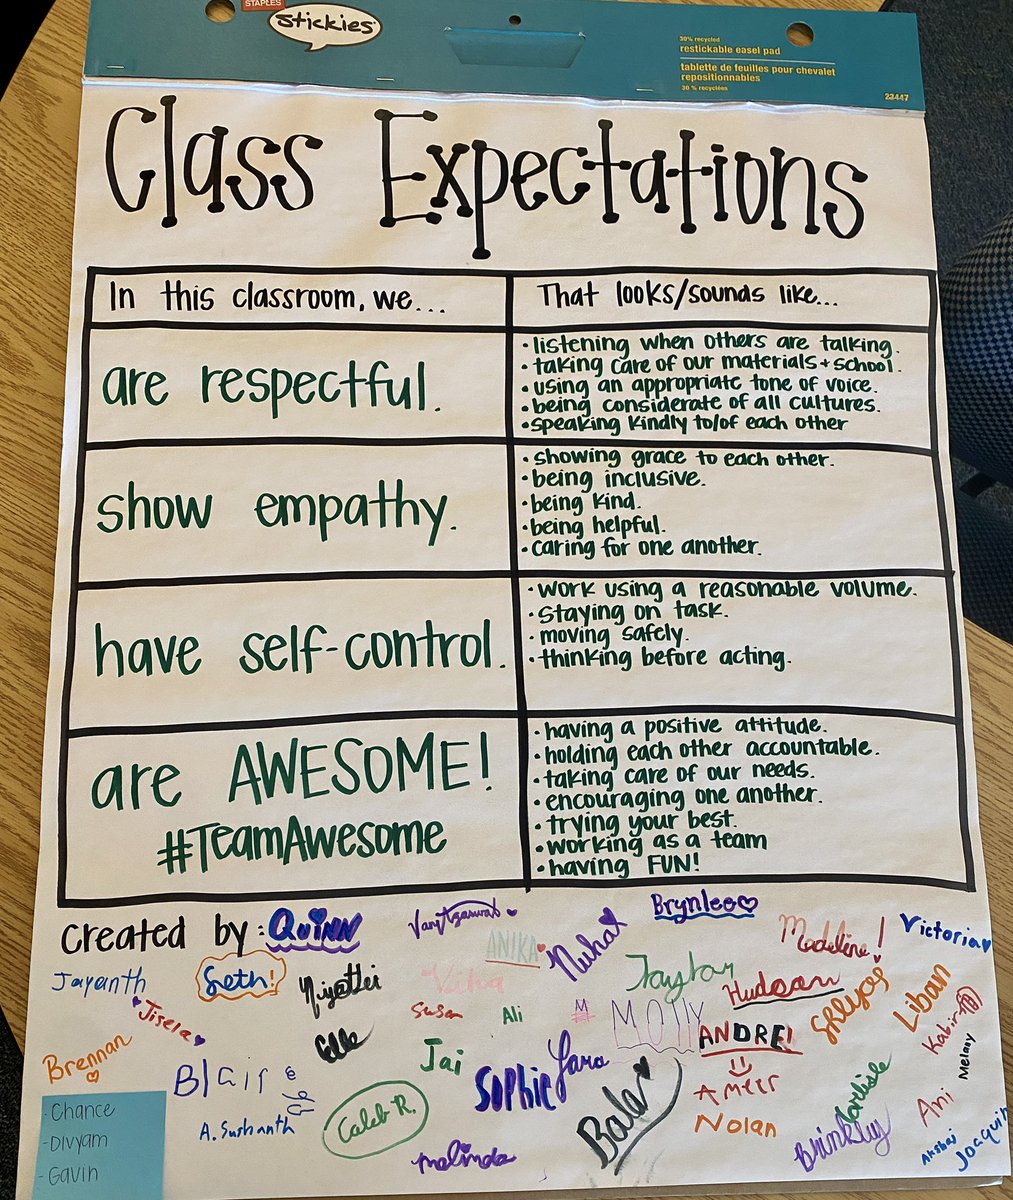 STAPLES
stickies
30% recycled
restickable easel pad
tablette de feuilles pour chevalet
repositionnables
30 % recyclées
23447
Class Expectations
In this classroom, we...
That looks/sounds like...
are respectful.
• listening when others are talking.
• taking care of our materials + school.
• using an appropriate tone of voice.
• being considerate of all cultures.
• speaking kindly to/of each other
show empathy.
• showing grace to each other.
• being inclusive.
• being kind.
• being helpful.
• caring for one another.
have self-control.
• work using a reasonable volume.
• staying on task.
• moving safely.
• thinking before acting.
are AWESOME!
#TeamAwesome
• having a positive attitude.
• holding each other accountable.
• taking care of our needs.
• encouraging one another.
• trying your best.
• working as a team
• having FUN!
created by: QUINN
Brynlee
Victoria
Madeline!
ANIKA
Nuha
Jayanth
Seth!
Taylor
Hudson
Liban
Jisela
Susan
Ali
MOlly
ANDRE!
Kabir
Melany
Brennan
Elle
Jai
Sophie
Lara
Blaire
Ameer
Caleb R.
Nolan
Ani
A. Sushanth
Melinda
Brinkley
Akshaj
Joaquin
- Chance
- Divyam
- Gavin